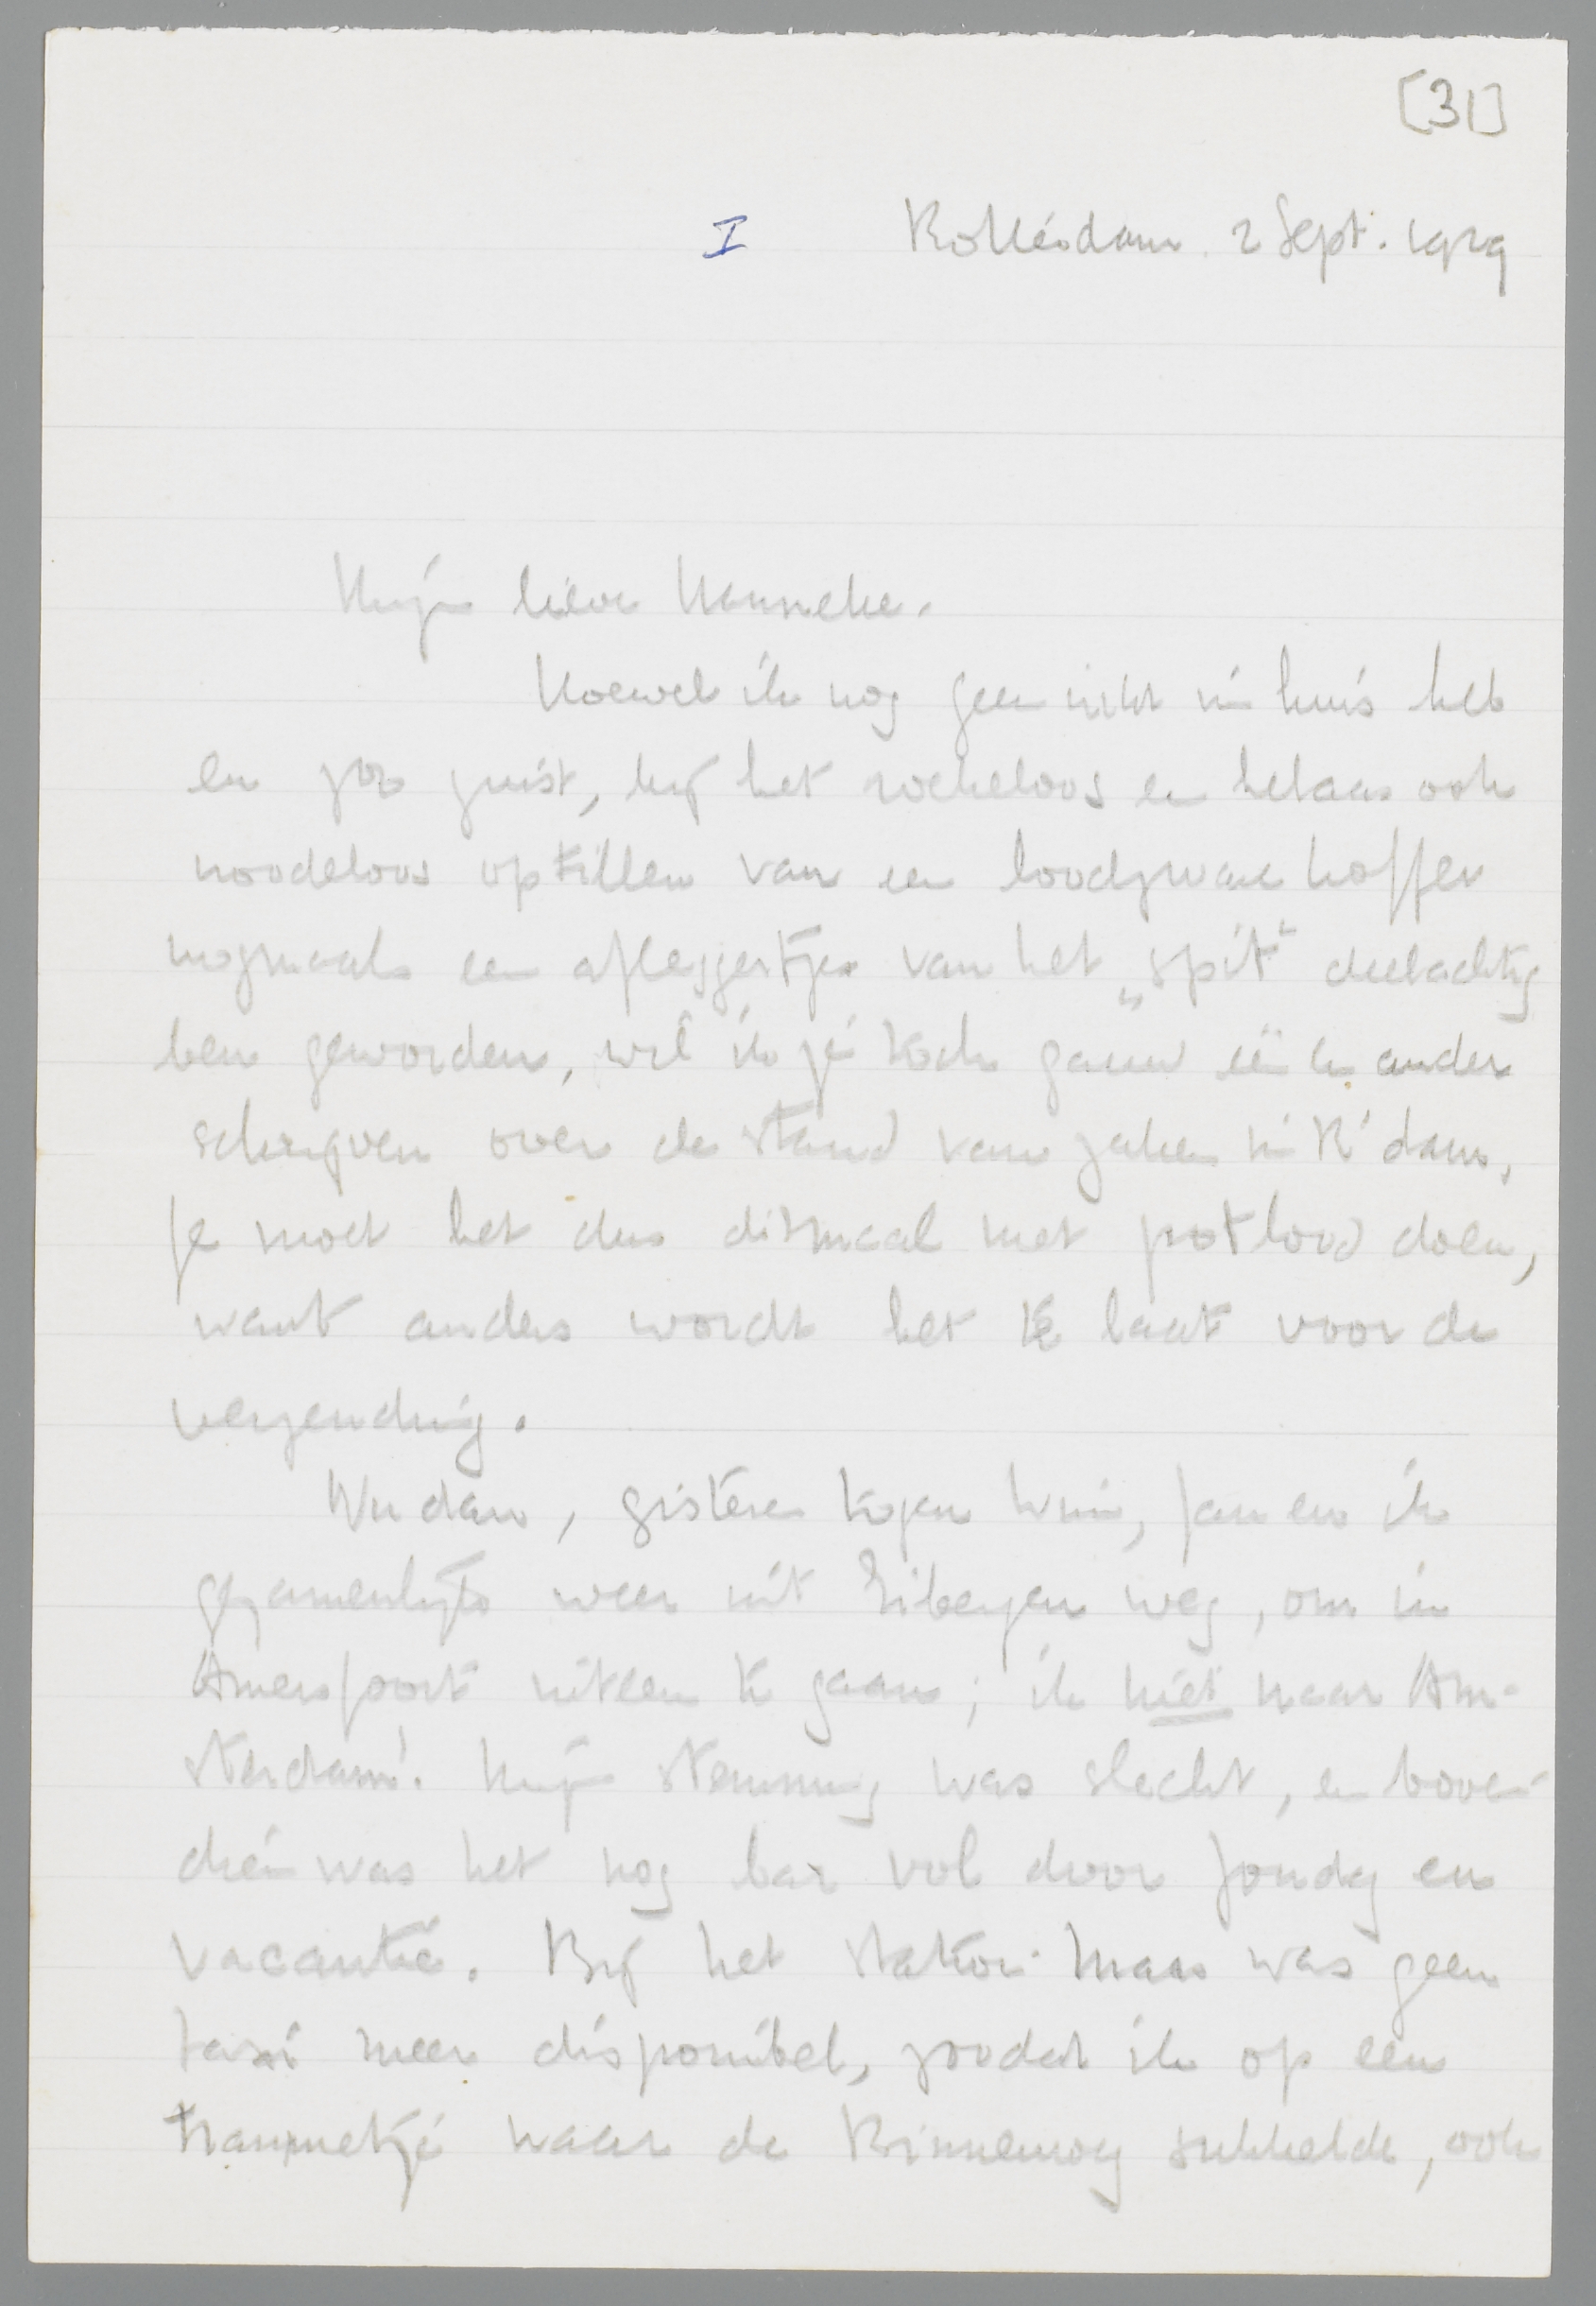 [31]
I Rotterdam. 2 Sept. 1929
Mijn lieve Hanneke.
Hoewel ik nog geen inkt in huis heb
en zoo juist, bij het roekeloos en helaas ook
noodeloos optillen van een loodzware koffer
nogmaals een afleggertje van het „spit“ deelachtig
ben geworden, wil ik je toch gauw één en ander
schrijven over de stand van zaken in R'dam,
Je moet het dus ditmaal met potlood doen,
want anders wordt het te laat voor de
verzending.
Nu dan, gisteren togen Wim, Jan en ik
gezamenlijk weer uit Eibergen weg, om in
Amersfoort uiteen te gaan; ik niet naar Am-
sterdam! Mijn stemming was slecht, en boven-
dien was het nog bar vol door Zondag en
vacantie. Bij het station Maas was geen
taxi meer disponibel, zoodat ik op een
trammetje naar de Binnenweg sukkelde, ook